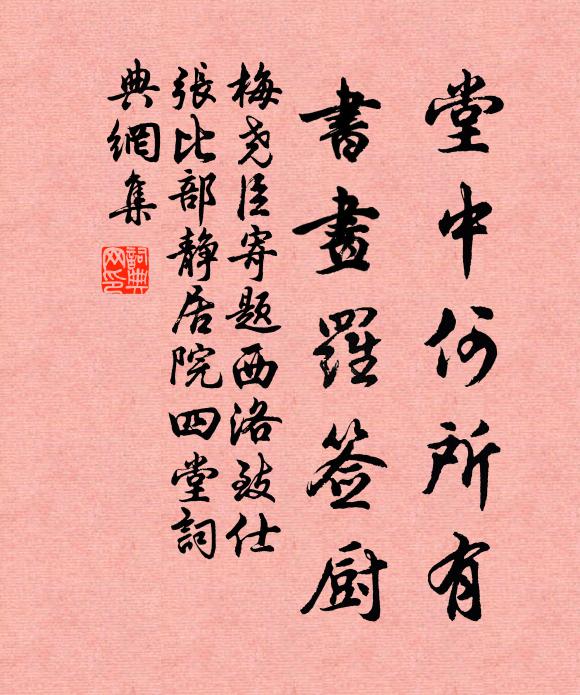 堂中何所有
書畫羅签厨
梅尧臣寄题西洛致仕
張比部靜居院四堂詞
典網集
詞典網印